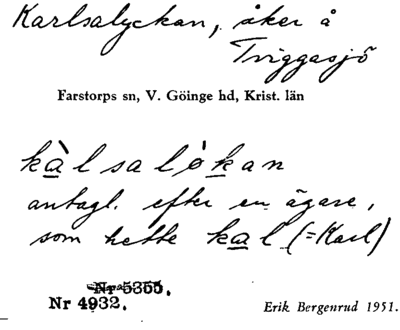 Karlsalyckan, åker å
Tviggasjö
Farstorps sn, V. Göinge hd, Krist. län
kàlsalò̀kan
antagl. efter en ägare,
som hette kal (=Karl)
Nr 5355.
Nr 4932.
Erik Bergenrud 1951.